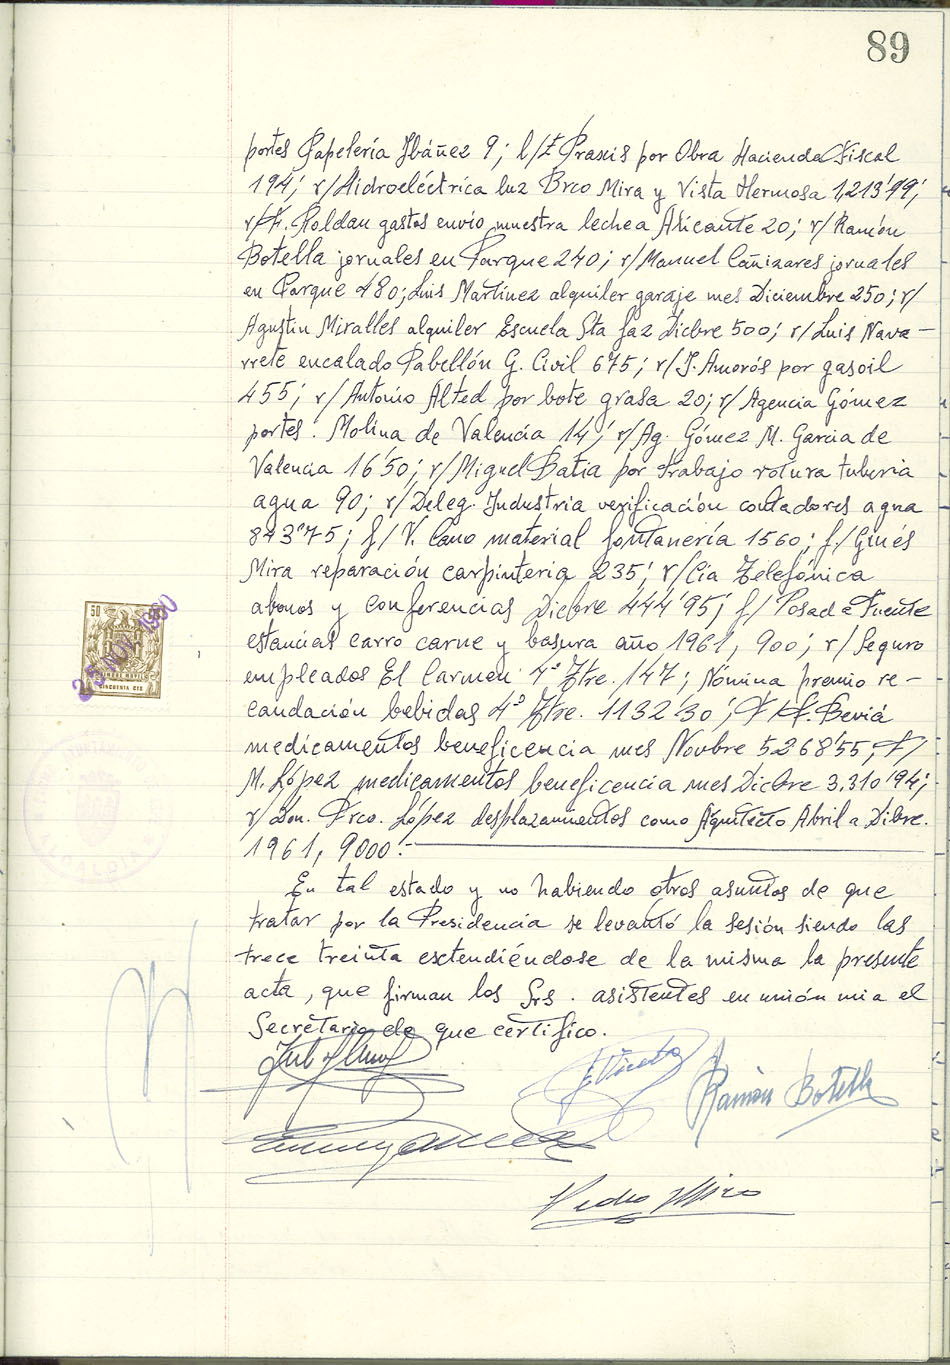 89
portes Papelería Ibáñez 9; l/E Praxis por Obra Hacienda Fiscal
194; r/Hidroeléctrica luz Brco Mira y Vista Hermosa 1,213'99;
r/F. Roldan gastos envio muestra leche a Alicante 20; r/Ramón
Botella jornales en Parque 240; r/Manuel Cañizares jornales
en Parque 480; Luis Martínez alquiler garaje mes Diciembre 250; r/
Agustin Miralles alquiler Escuela Sta faz Dicbre 500; r/Luis Nava-
rrete encalado Pabellón G. Civil 675; r/J. Amorós por gasoil
455; r/Antonio Alted por bote grasa 20; r/Agencia Gómez
portes. Molina de Valencia 14; r/Ag. Gómez M. Garcia de
Valencia 16'50; r/Miguel Batia por trabajo rotura tuberia
agua 90; r/Deleg. Industria verificación contadores agua
843'75; f/V. Cano material fontanería 1560; f/Ginés
Mira reparación carpinteria 235; r/Cia Telefónica
abonos y conferencias Dicbre 444'95; f/Posada Fuente
estancias carro carne y basura año 1961, 900; r/Seguro
empleados El Carmen 4º Ztre. 147; Nómina premio re-
caudación bebidas 4º Ztre. 1132'30; F/F. Beviá
medicamentos beneficencia mes Novbre 5268'55; F/
M. López medicamentos beneficencia mes Dicbre 3.310'94;
r/Don. Frco. López desplazamientos como Aquitecto Abril a Dibre.
1961, 9000.-
En tal estado y no habiendo otros asuntos de que
tratar por la Presidencia se levantó la sesión siendo las
trece treinta extendiéndose de la misma la presente
acta, que firman los Srs. asistentes en unión mia el
Secretario de que certifico.
50
25 NOV. 1960
TIMBRE MOVIL
CINCUENTA CTS
ALCALDIA
Ramón Botella
Pedro Miro